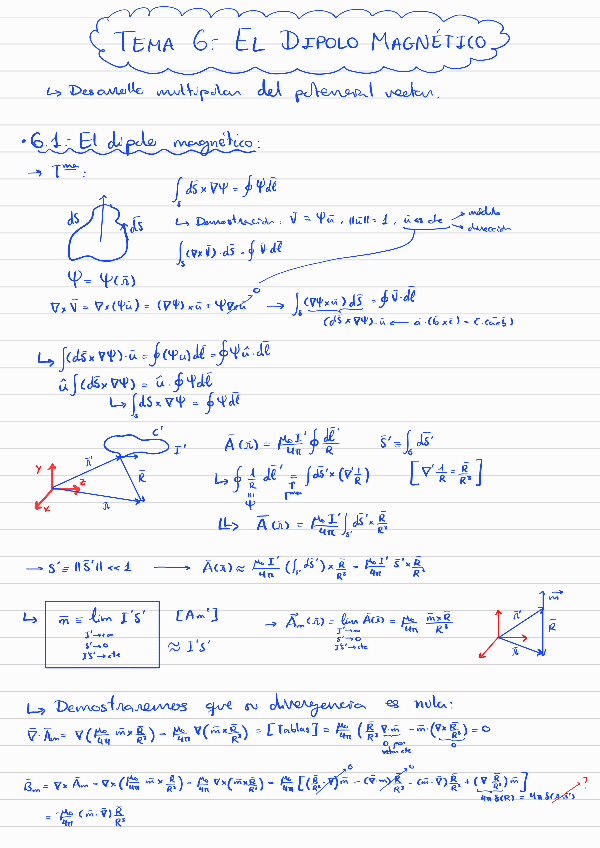 TEMA 6: EL DIPOLO MAGNÉTICO
↳ Desarrollo multipolar del potencial vector.
• 6.1: El dipolo magnético:
→ T^ma:
∫_S dS̄ × ∇Ψ = ∮ Ψ dl̄
↳ Demostración: V̄ = Ψū, ||ū|| = 1, ū es cte → módulo → dirección
dS dS̄
∫_S (∇×V̄)·dS̄ = ∮ V̄·dl̄
Ψ = Ψ(r̄)
∇×V̄ = ∇×(Ψū) = (∇Ψ)×ū + Ψ∇×ū → 0 → ∫_S (∇Ψ×ū) dS̄ = ∮ V̄·dl̄
(dS̄×∇Ψ)·ū ← ā·(b̄×c̄) = c̄·(ā×b̄)
↳ ∫(dS̄×∇Ψ)·ū = ∮(Ψu)dl̄ = ∮Ψû·dl̄
û∫(dS̄×∇Ψ) = û·∮Ψdl̄
↳ ∫_S dS×∇Ψ = ∮Ψdl̄
C' I' r̄' R̄ r̄ Y Z X
Ā(r̄) = μ₀I'/4π ∮ dl̄'/R S̄' ≡ ∫_S dS̄'
↳ ∮ 1/R dl̄' = ∫dS̄'×(∇'1/R) [∇'1/R = R̄/R³]
Ψ T^ma
↳ Ā(r̄) = μ₀I'/4π ∫_S' dS̄'×R̄/R³
→ S' ≡ ||S̄'|| << 1 → Ā(r̄) ≈ μ₀I'/4π (∫_S' dS̄')×R̄/R³ = μ₀I'/4π S̄'×R̄/R³
↳ m̄ ≡ lim I'S' [Am²] → Ā_m(r̄) = lim Ā(r̄) = μ₀/4π m̄×R̄/R³
I'→∞ S'→0 I'S'→cte ≈ I'S' I'→∞ S'→0 I'S'→cte
m̄ r̄' R̄ r̄
↳ Demostraremos que su divergencia es nula:
∇̄·Ā_m = ∇(μ₀/4π m̄×R̄/R³) = μ₀/4π ∇(m̄×R̄/R³) = [Tablas] = μ₀/4π (R̄/R³ ∇·m̄ - m̄·(∇×R̄/R³)) = 0
0 por 0
B̄_m = ∇×Ā_m = ∇×(μ₀/4π m̄×R̄/R³) = μ₀/4π ∇×(m̄×R̄/R³) = μ₀/4π [(R̄/R³·∇)m̄ - (∇·m̄)R̄/R³ - (m̄·∇)R̄/R³ + (∇R̄/R³)m̄] ?
0 0 4πδ(R̄) = 4πδ(r̄-r̄')
= -μ₀/4π (m̄·∇)R̄/R³